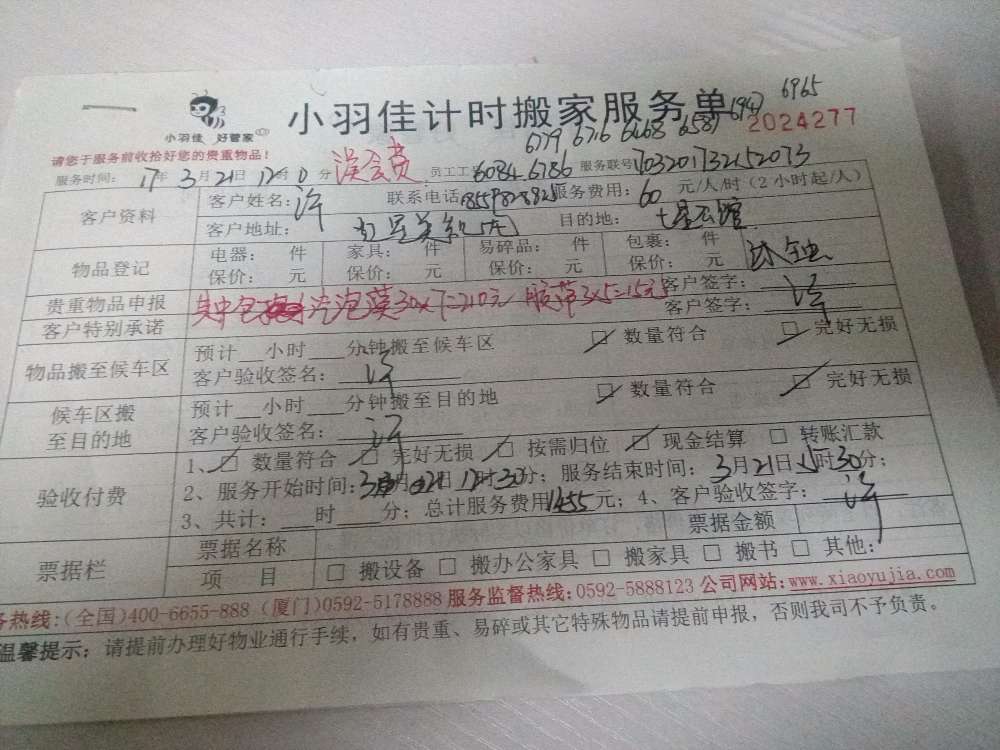 6965
小羽佳计时搬家服务单
小羽佳 好管家
6779 6716 6468 6587 6947
2024277
请您于服务前收拾好您的贵重物品！
服务时间： 17年 3月21日12时0分 误会员 员工工号 6084. 6786 服务联号
客户资料 客户姓名：许 联系电话 服务费用：60 元/人/时（2小时起/人）
客户地址： 红星美凯龙 目的地：
物品登记 电器： 件 家具： 件 易碎品： 件 包裹： 件
保价： 元 保价： 元 保价： 元 保价： 元
贵重物品申报 其中包 汽泡膜30x7=210元 胶带3x5=15元 客户签字：许
客户特别承诺 客户签字：
物品搬至候车区 预计 小时 分钟搬至候车区 数量符合 完好无损
客户验收签名：许
候车区搬至目的地 预计 小时 分钟搬至目的地 数量符合 完好无损
客户验收签名：许
验收付费 1、 数量符合 完好无损 按需归位 现金结算 转账汇款
2、服务开始时间：3月21日12时30分；服务结束时间：3月21日 时30分；
3、共计： 时 分；总计服务费用1455元；4、客户验收签字：许
票据栏 票据名称 票据金额
项 目 搬设备 搬办公家具 搬家具 搬书 其他：
务热线：(全国)400-6655-888 (厦门)0592-5178888 服务监督热线：0592-5888123 公司网站：www.xiaoyujia.com
温馨提示：请提前办理好物业通行手续，如有贵重、易碎或其它特殊物品请提前申报，否则我司不予负责。